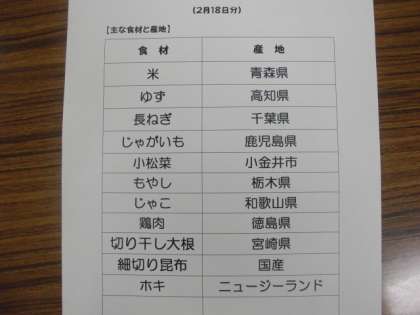 (2月18日分)
【主な食材と産地】
食材 産地
米 青森県
ゆず 高知県
長ねぎ 千葉県
じゃがいも 鹿児島県
小松菜 小金井市
もやし 栃木県
じゃこ 和歌山県
鶏肉 徳島県
切り干し大根 宮崎県
細切り昆布 国産
ホキ ニュージーランド